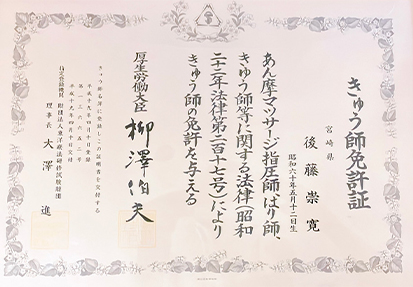 きゅう師免許証
宮崎県
後藤崇寛
昭和六十年五月十二日生
あん摩マツサージ指圧師、はり師、
きゆう師等に関する法律(昭和
二十二年法律第二百十七号)により
きゅう師の免許を与える
厚生労働大臣 柳澤伯夫
きゅう師名簿に登録しこの証明書を交付する
平成十九年四月十日登録
平成十九年四月十日交付
指定登録機関 財団法人東洋療法研修試験財団
理事長 大澤 進